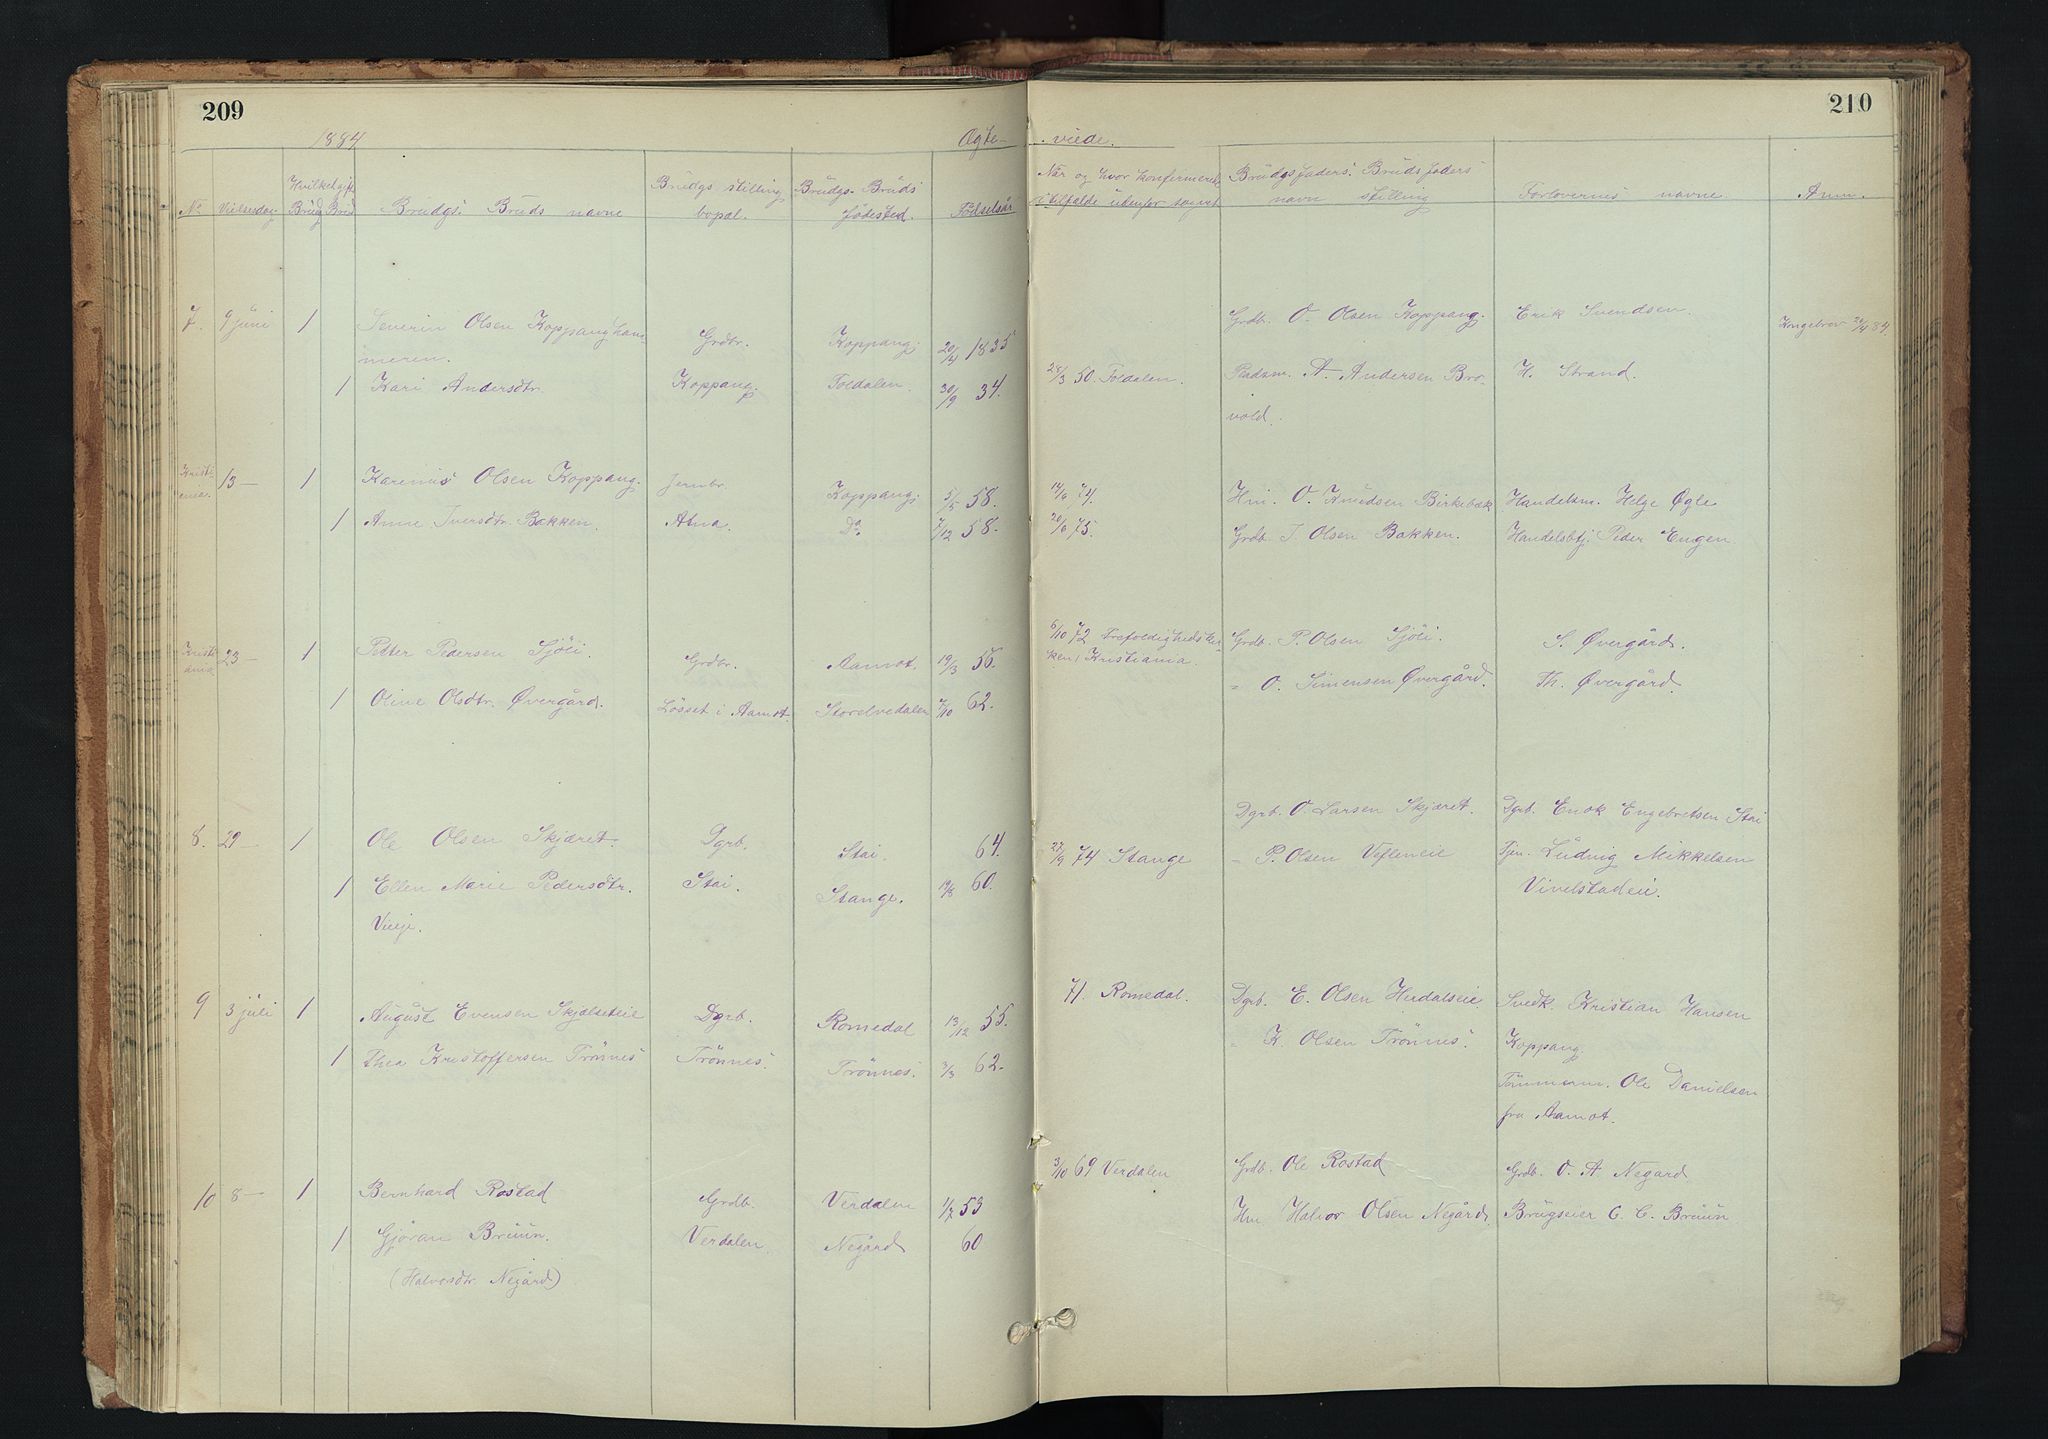 209
210
1884
Ægte-
viede.
No
Vielsesdag
Brudgs. Bruds navne
Brudgs stilling
bopæl.
Brudgs. Bruds
fødested.
Fødselsår
Når og hvor konfirmeret,
Brudgsfaders. Brudsfaders
navn stilling
Forlovernes navne.
Anm.
7. 9 juni 1 Severin Olsen Koppangkam-
meren. Grdbr. Koppang. 20/4 1835 Grdb. O. Olsen Koppang. Erik Svendsen. Kongebrev 20/4 84.
1 Kari Andersdtr. Koppang. Foldalen. 30/9 34. 28/3 50. Foldalen. Pladsm. A. Andersen Bro- H. Strand.
vold.
Kristi-
ania. 13 — 1 Karenius Olsen Koppang. Jernbr. Koppang. 5/5 58. 14/6 74. Hm. O. Knudsen Birkebæk Handelsm. Helge Øgle
1 Anne Iversdtr. Bakken. Atna. Do. 7/12 58. 20/6 75. Grdb. I. Olsen Bakken. Handelsbtj. Peder Engen
Kristi-
ania 23 — 1 Petter Pedersen Sjöli. Grdbr. Aamot. 19/3 56. 6/10 72 Trefoldighedskir- Grdb. P. Olsen Sjöli. S. Øvergård.
ken, Kristiania.
1 Oline Olsdtr. Øvergård. Løsset i Aamot. Storelvedalen 7/10 62. " O. Simensen Øvergård. Th. Øvergård.
8. 29 — 1 Ole Olsen Skjæret. Dgrb. Stai. 64. Dgrb. O. Larsen Skjæret. Dgrb. Enok Engebretsen Stai
1 Ellen Marie Pedersdtr. Stai. Stange. 19/8 60. 27/9 74 Stange " P. Olsen Tjen. Ludvig Mikkelsen
Vinelstadeie.
9 3 juli 1 August Evensen Skjælseteie Dgrb. Romedal 13/12 55. 71. Romedal. Dgrb. E. Olsen Svedk. Kristian Hansen
Koppang.
1 Thea Kristoffersen Trönnes Trönnes. Trönnes. 3/3 62. " K. Olsen Trönnes.
Tömmerm. Ole Danielsen
fra Aamot.
10 8 — 1 Bernhard Rostad Grdb. Verdalen 1/7 53 3/10 69 Verdalen Grdb. Ole Rostad Grdb. O. A. Negard
1 Gjöran Bruun. Verdalen. Negård 60 Hm Halvor Olsen Negård. Brugseier C. C. Bruun
(Halvorsdtr. Negård)